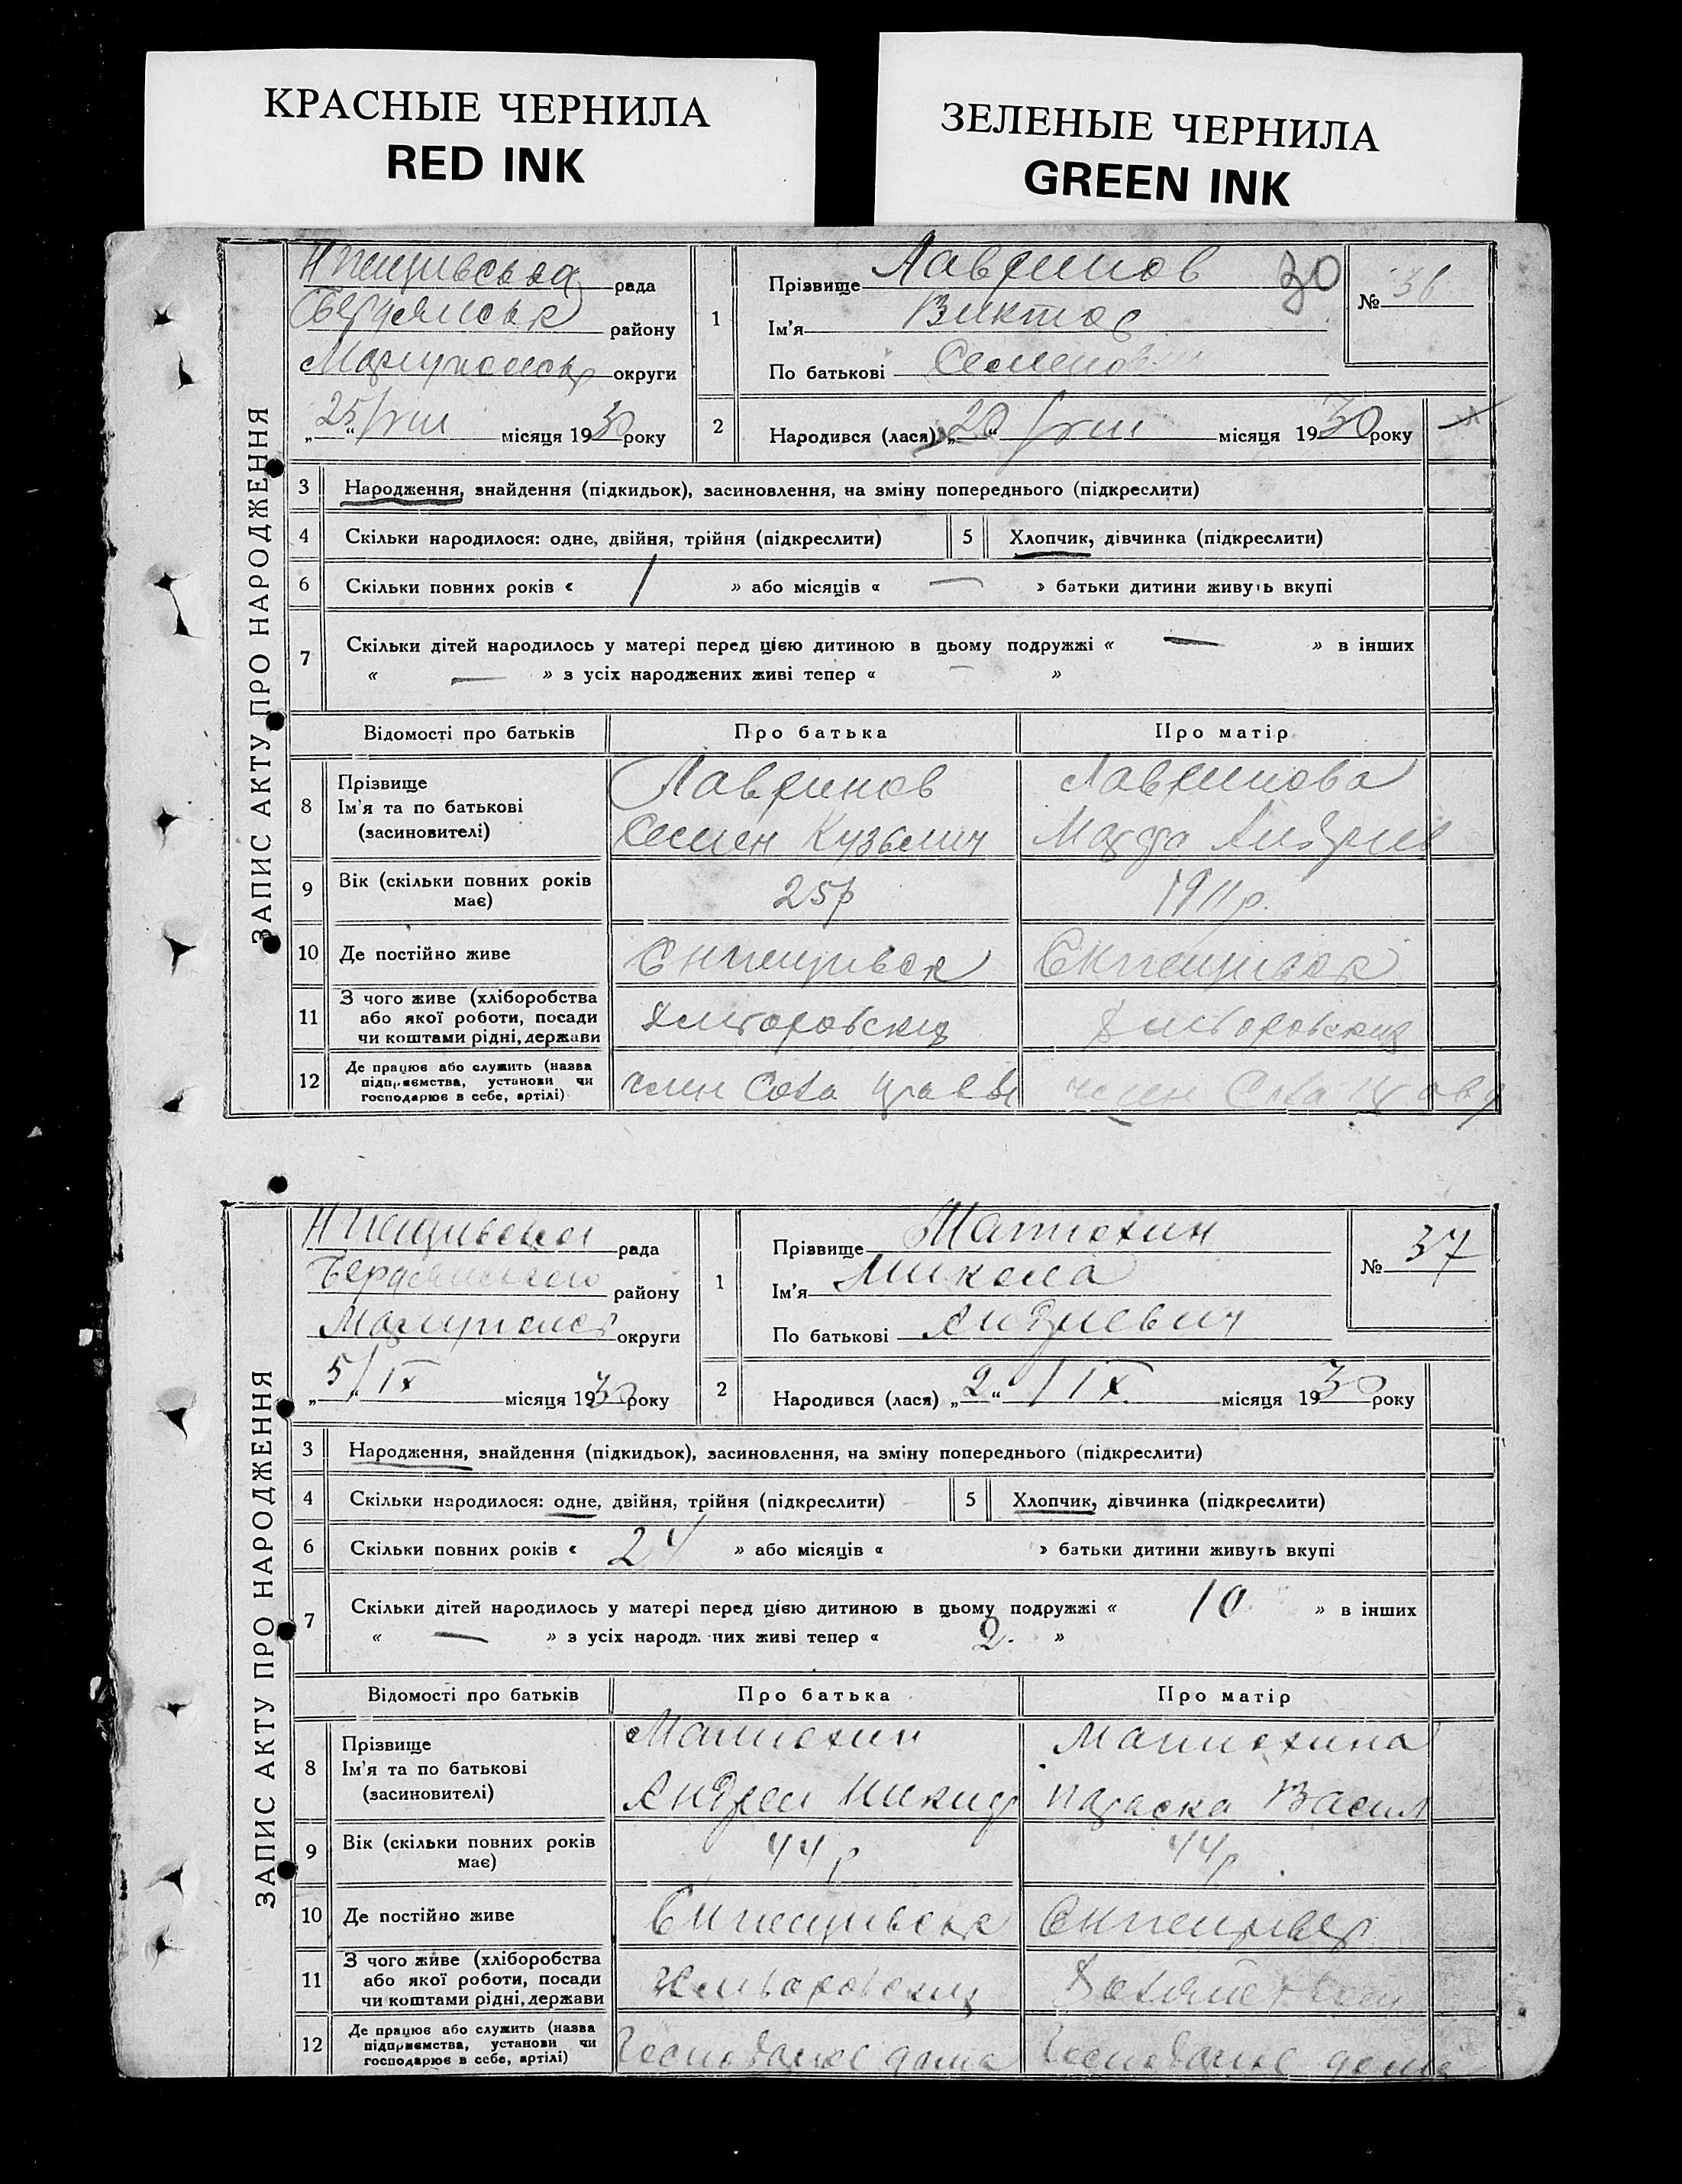 КРАСНЫЕ ЧЕРНИЛА
RED INK
ЗЕЛЕНЫЕ ЧЕРНИЛА
GREEN INK
ЗАПИС АКТУ ПРО НАРОДЖЕННЯ
рада
району
округи
25/VIII місяця 1930 року
1
Прізвище Лавринов
30
Ім'я Виктор
По батькові
№ 36
2
Народився (лася) „20“ /VIII місяця 1930 року
3 Народження, знайдення (підкидьок), засиновлення, на зміну попереднього (підкреслити)
4 Скільки народилося: одне, двійня, трійня (підкреслити)
5 Хлопчик, дівчинка (підкреслити)
6 Скільки повних років « 1 » або місяців « — » батьки дитини живуть вкупі
7 Скільки дітей народилось у матері перед цією дитиною в цьому подружжі « — » в інших
« — » з усіх народжених живі тепер « — »
Відомості про батьків Про батька Про матір
8 Прізвище Лавринов Лавринова
Ім'я та по батькові
(засиновителі) Семен Кузьмич
9 Вік (скільки повних років має) 25р 1911р.
10 Де постійно живе
11 З чого живе (хліборобства
або якої роботи, посади
чи коштами рідні, держави
12 Де працює або служить (назва
підприємства, установи чи
господарює в себе, артілі)
член член
ЗАПИС АКТУ ПРО НАРОДЖЕННЯ
рада
Бердянського району
округи
5/IX місяця 1930 року
1
Прізвище Матюхин
Ім'я Микола
По батькові Андриевич
№ 37
2
Народився (лася) „2“ /IX місяця 1930 року
3 Народження, знайдення (підкидьок), засиновлення, на зміну попереднього (підкреслити)
4 Скільки народилося: одне, двійня, трійня (підкреслити)
5 Хлопчик, дівчинка (підкреслити)
6 Скільки повних років « 24 » або місяців « » батьки дитини живуть вкупі
7 Скільки дітей народилось у матері перед цією дитиною в цьому подружжі « 10 » в інших
« — » з усіх народж них живі тепер « 2. »
Відомості про батьків Про батька Про матір
8 Прізвище Матюхин Матюхина
Ім'я та по батькові
(засиновителі) Андрей Параска Васил
9 Вік (скільки повних років має) 44р 44р.
10 Де постійно живе
11 З чого живе (хліборобства
або якої роботи, посади
чи коштами рідні, держави
12 Де працює або служить (назва
підприємства, установи чи
господарює в себе, артілі)
Господарює дома Господарює дома